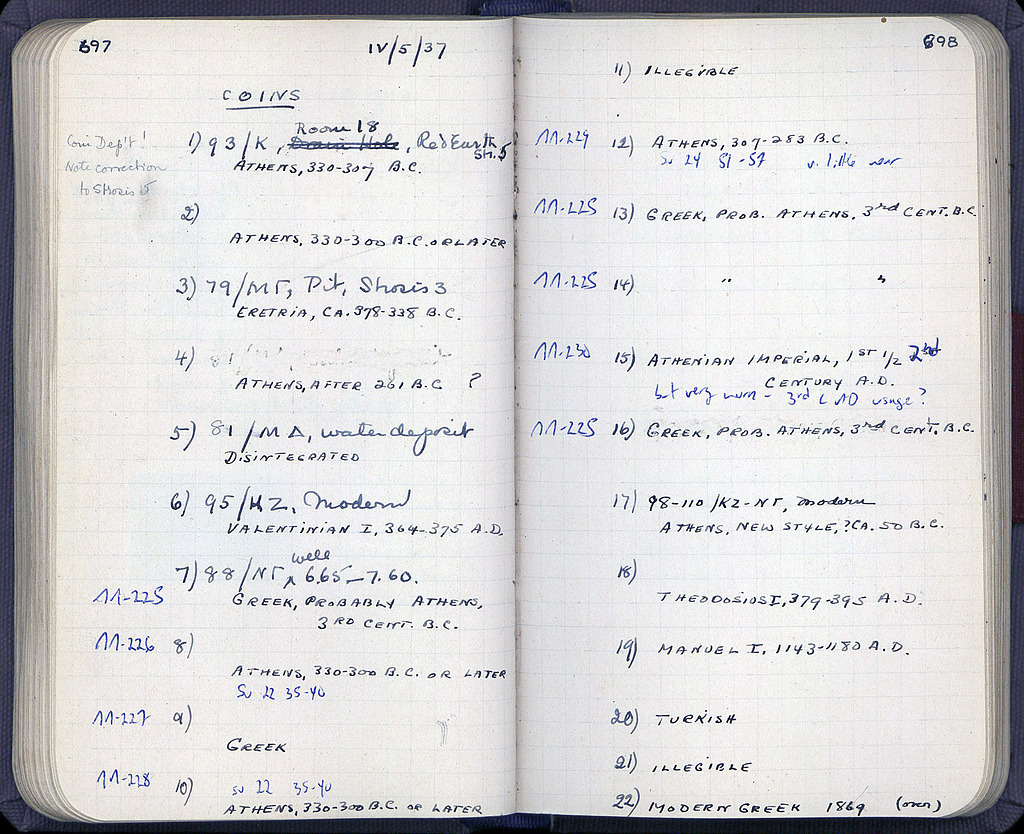 697
IV/5/37
COINS
Coin Dep't!
Note correction
to Strosis 5
Room 18
1) 93/K, Drain Hole, Red Earth
Str. 5
ATHENS, 330-307 B.C.
2)
ATHENS, 330-300 B.C. OR LATER
3) 79/ΜΓ, Pit, Strosis 3
ERETRIA, CA. 378-338 B.C.
4) 81/
ATHENS, AFTER 261 B.C ?
5) 81/ΜΔ, water deposit
DISINTEGRATED
6) 95/ΚΖ, Modern
VALENTINIAN I, 364-375 A.D.
well
7) 88/ΝΓ ^ 6.65-7.60.
ΛΛ-225
GREEK, PROBABLY ATHENS,
3RD CENT. B.C.
ΛΛ-226 8)
ATHENS, 330-300 B.C. OR LATER
Sv 22 35-40
ΛΛ-227 9)
GREEK
ΛΛ-228 10) Sv 22 35-40
ATHENS, 330-300 B.C. OR LATER
698
11) ILLEGIBLE
ΛΛ-229 12) ATHENS, 307-283 B.C.
Sv 24 51-57 v. little wear
ΛΛ-225 13) GREEK, PROB. ATHENS, 3rd CENT. B.C.
ΛΛ-225 14) " "
ΛΛ-230 15) ATHENIAN IMPERIAL, 1ST 1/2 2nd
CENTURY A.D.
but very worn - 3rd c AD usage?
ΛΛ-225 16) GREEK, PROB. ATHENS, 3rd CENT. B.C.
17) 98-110/ΚΖ-ΝΓ, modern
ATHENS, NEW STYLE, ?CA. 50 B.C.
18)
THEODOSIOS I, 379-395 A.D.
19) MANUEL I, 1143-1180 A.D.
20) TURKISH
21) ILLEGIBLE
22) MODERN GREEK 1869 (over)